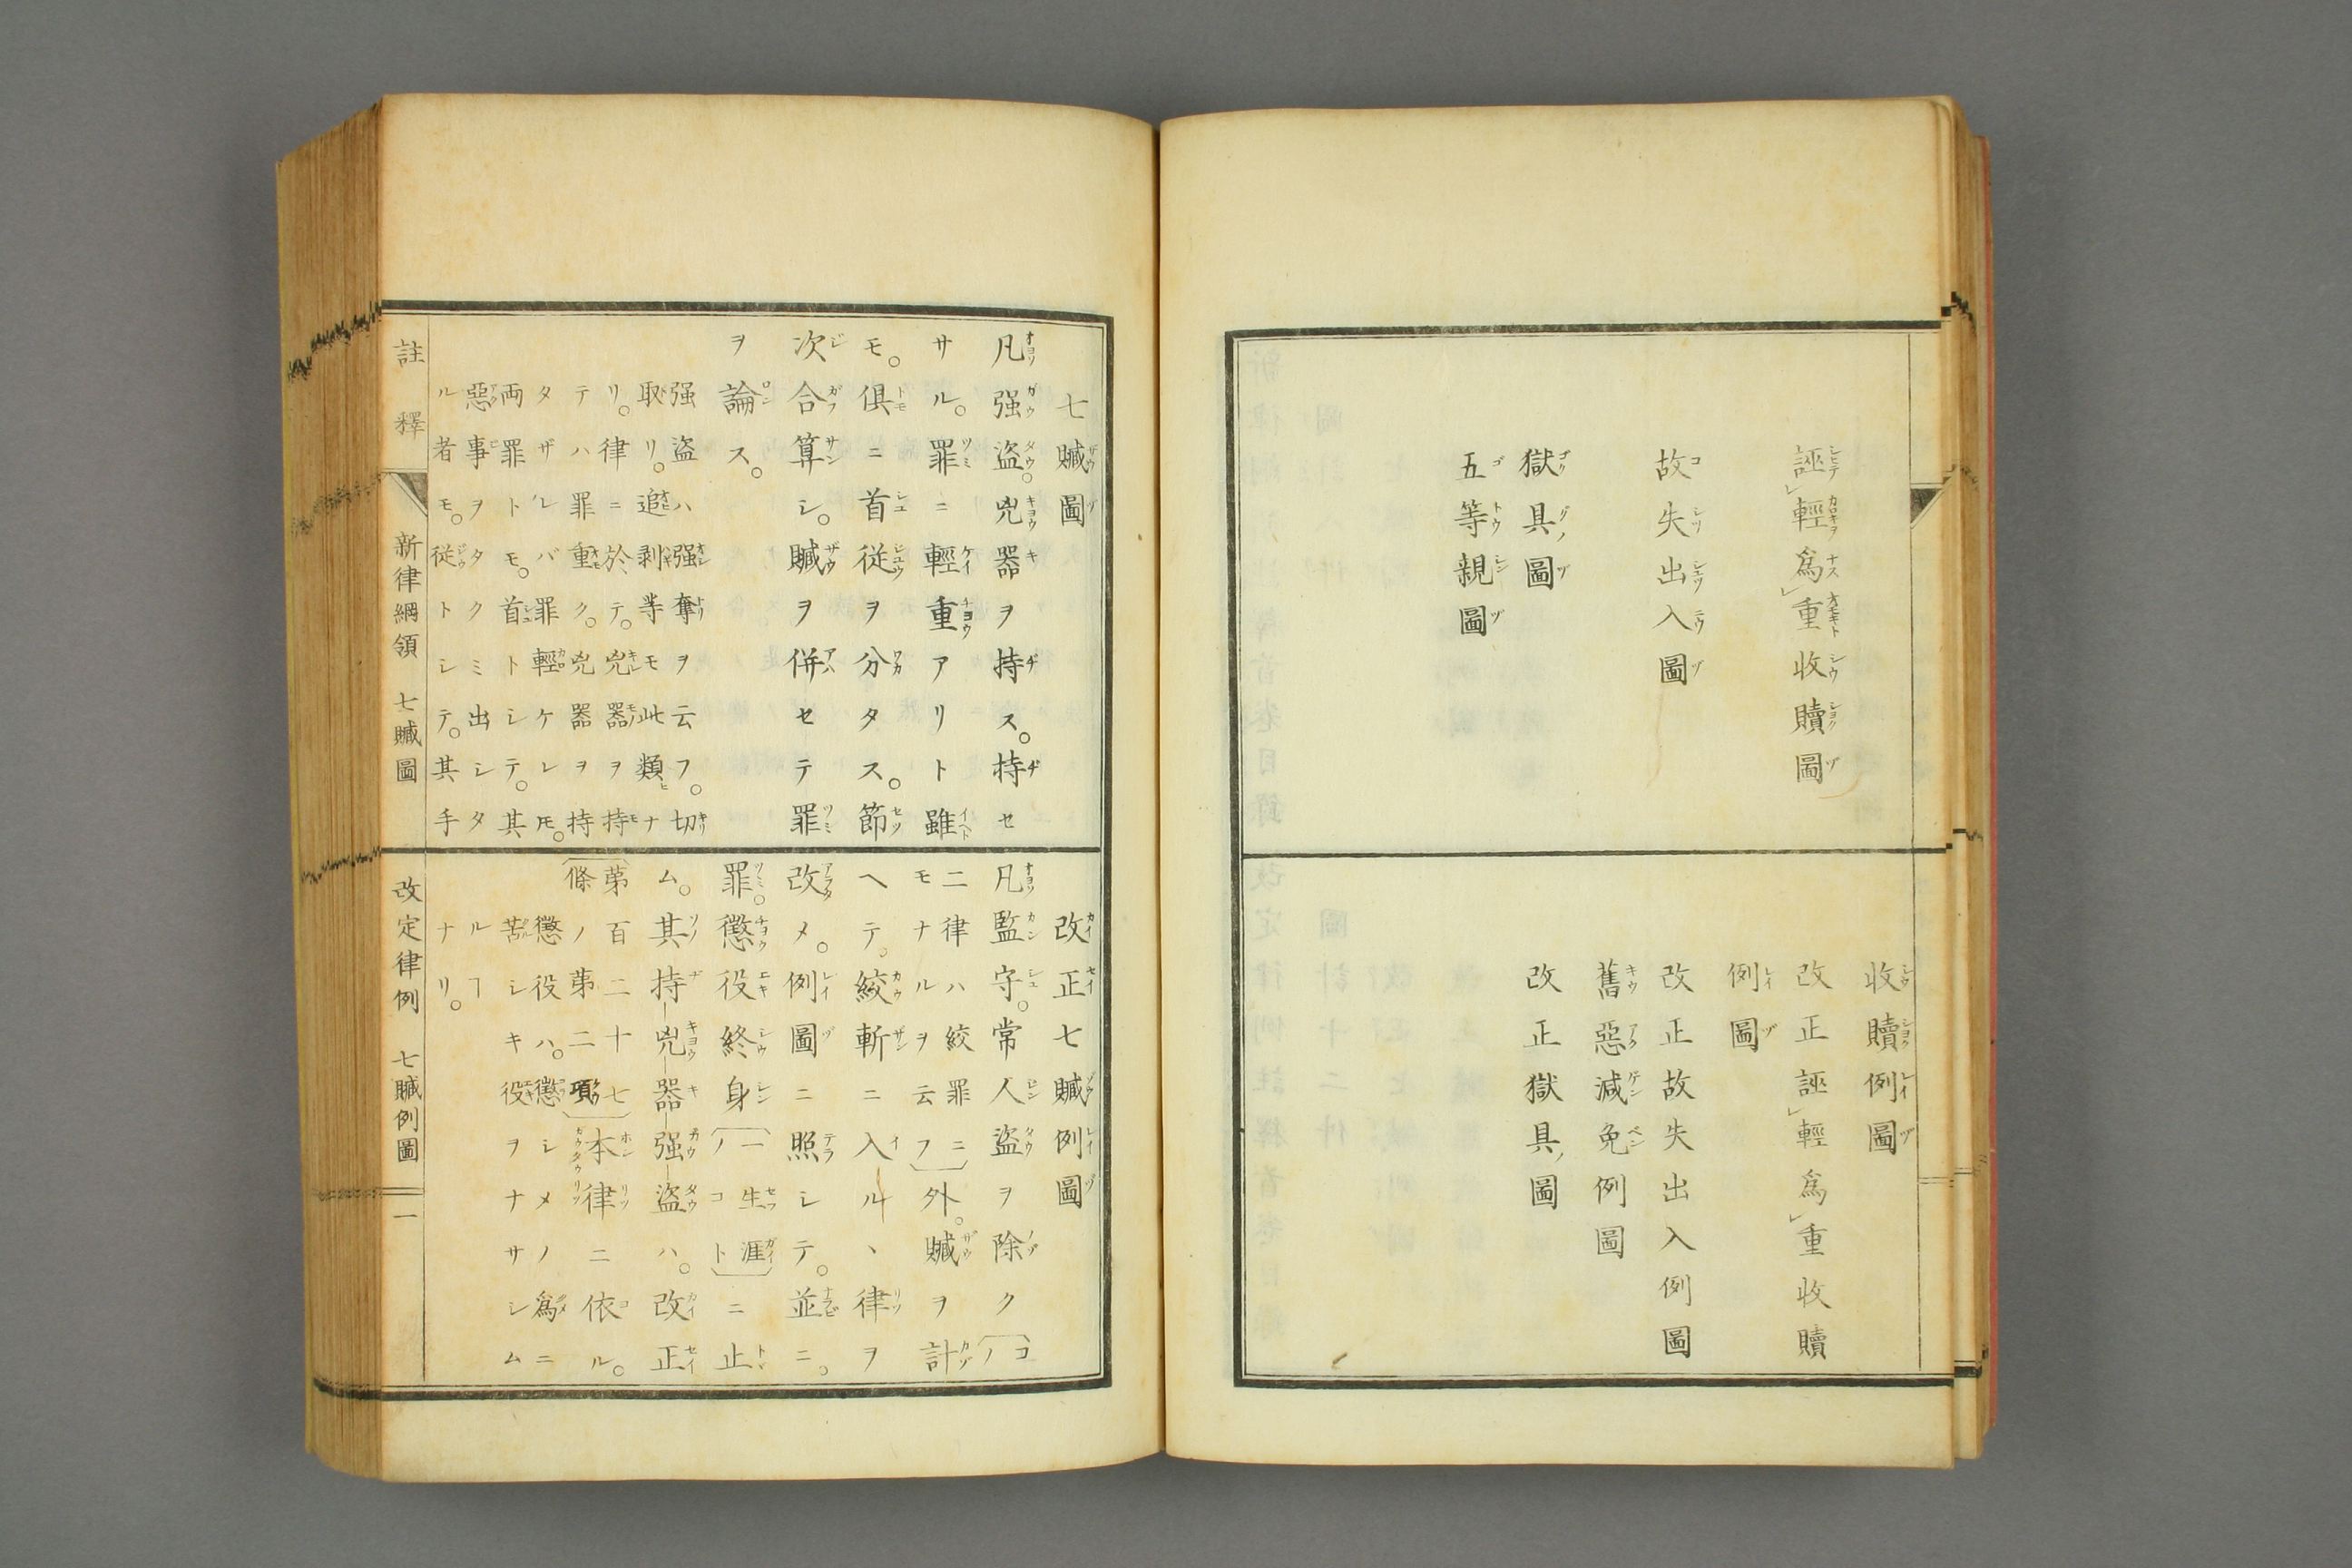 誣輕爲重收贖圖
故失出入圖
獄具圖
五等親圖
收贖例圖
改正誣輕爲重收贖
例圖
改正故失出入例圖
舊惡減免例圖
改正獄具圖
七贓圖
凡强盜。兇器ヲ持ス。持セ
サル。罪ニ輕重アリト雖
モ。俱ニ首從ヲ分タス。節
次合算シ。贓ヲ併セテ罪
ヲ論ス。
强盜ハ强奪ヲ云フ。切
取リ。追剥等モ此類ナ
リ。律ニ於テ。兇器ヲ持
テハ罪重ク。兇器ヲ持
タザレバ罪輕ケレ𪜈。
両罪トモ。首トシテ。其
惡事ヲタクミ出シタ
ル者モ。從トシテ。其手
改正七贓例圖
凡監守。常人盜ヲ除ク(コノ
二律ハ絞罪ニ
モナルヲ云フ)外。贓ヲ計
ヘテ。絞斬ニ入ルヽ律ヲ
改メ。例圖ニ照シテ。並ニ。
罪。懲役終身(一生涯
ノコト)ニ止
ム。其持兇器强盜ハ。改正
第百二十七
條ノ第二項)本律ニ依ル。
懲役ハ。懲シメノ爲ニ
苦シキ役ヲナサシム
ルヿ
ナリ。
註釋
新律綱領 七贓圖
改定律例 七贓例圖
一